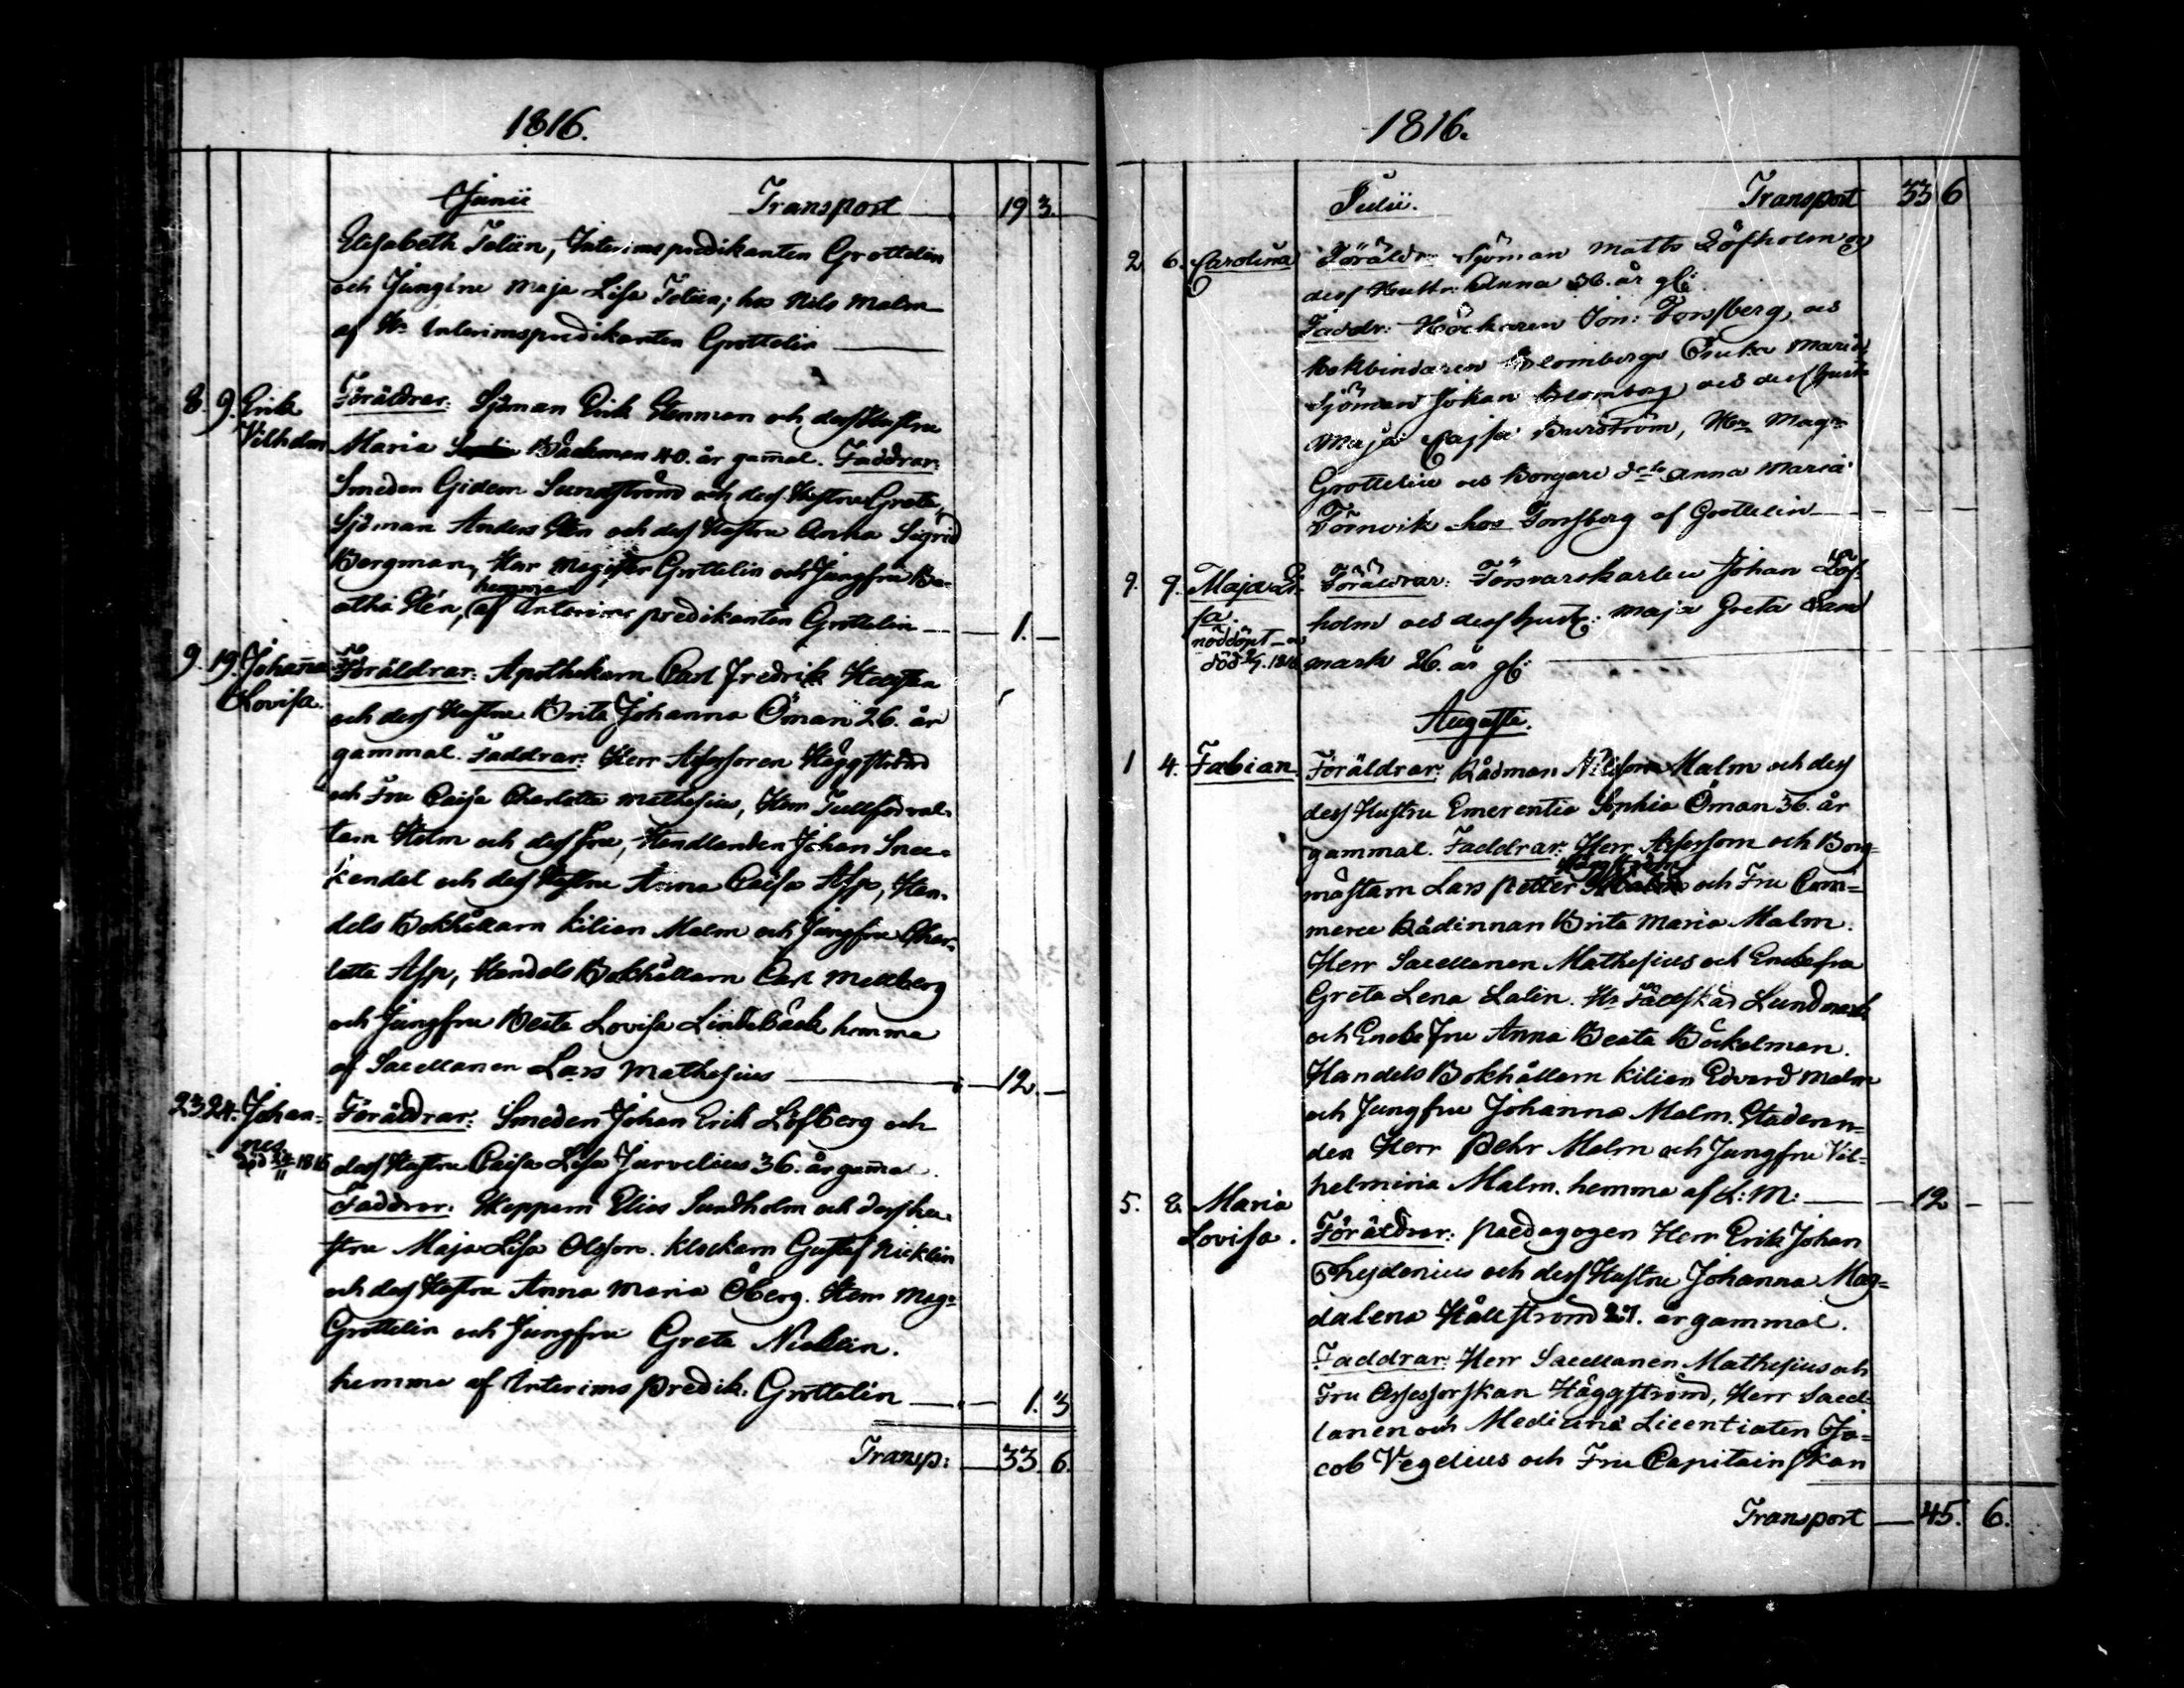 1816.
Junii Transport 19 3.
Elisabeth Telin, Interimspredikanten Grottelin
och Jungfru Maja Lisa Telin; hos Nils Malm
af Hr Interimspredikanten Grottelin
8. 9. Erik Vilhelm
Föräldrar: Sjöman Erik Stenman och dess Hustru
Maria Backman 40. år gam̄al. Faddrar:
Smeden Gideon Sundström och dess Hustru Greta,
Sjöman Anders Sten och dess Hustru Anna Sigrid
Bergman, Herr Magister Grottelin och Jungfru Be-
atha Stén, hemma af Interims predikanten Grottelin 1.
9. 19. Johan̄a Lovisa.
Föräldrar: Apothekarn Carl Fredrik
och dess Hustru Brita Johanna Öman 26. år
gammal. Faddrar: Herr Assessoren Häggström
och Fru Caisa Charlotta Mathesius, Herr Tullförval-
tarn Holm och dess Fru, Handlanden Johan Snee-
kendal och dess Hustru Anna Caisa Asp, Han-
dels Bokhållarn Kilian Malm och Jungfru Char-
lotta Asp, Handels Bokhållarn Carl Mellberg
och Jungfru Beata Lovisa Lindebäck hemma
af Sacellanen Lars Mathesius 12.
23 24. Johan-
nes
död 1816
Föräldrar: Smeden Johan Erik Löfberg och
dess Hustru Caisa Lisa Jurvelius 36. år gam̄al.
Faddrar: Skepparn Elias Sundholm och dess hu-
stru Maja Lisa Olsson. Klockarn Gustaf Nicklin
och dess Hustru Anna Maria Öberg. Herr Mag:
Grottelin och Jungfru Greta Nicklin.
hemma af Interims predik: Grottelin 1. 3
Transp: 33. 6.
1816.
Julii. Transport 33 6
2 6. Carolina
Föräldr: Sjöman Matts Löfholm o
dess Hustr: Anna 36. år gl:
Faddr: Hökaren Jon: Forssberg, och
Bokbindaren Blombergs Enka Maria,
Sjöman Johan Blomberg och dess hustr
Maja Cajsa Burström, Herr Mag:
Grottelin och Borgare Anna Maria
Törnvik hos Forssberg af Grottelin
9. 9. Maja Li-
sa.
nöddöpt
död 1816
Föräldrar: Försvarskarlen Johan Löf-
holm och dess hustr: Maja Greta Sand
mark 26. år gl:
Augusti.
1 4. Fabian
Föräldrar: Rådman Nilsson Malm och dess
dess Hustru Emerentia Sophia Öman 36. år
gammal. Faddrar: Herr Assessorn och Borg-
mästarn Lars Petter och Fru Com-
merce Rådinnan Brita Maria Malm.
Herr Sacellanen Mathesius och Enkefru
Greta Lena Lalin. Hr Fältskär Lundmark
och Enke Fru Anna Beata Böckelman.
Handels Bokhållarn Kilian Edvard Malm
och Jungfru Johanna Malm. Studeran-
den Herr Pehr Malm och Jungfru Vil-
helmina Malm. hemma af L: M: 12
5. 8. Maria
Lovisa.
Föräldrar: Paedagogen Herr Erik Johan
Chydenius och dess Hustru Johanna Mag-
dalena Hällström 27. år gammal.
Faddrar: Herr Sacellanen Mathesius och
Fru Assessorskan Häggström, Herr Sacel-
lanen och Medicinae Licentiaten Ja-
cob Vegelius och Fru Capitainskan
Transport 45. 6.